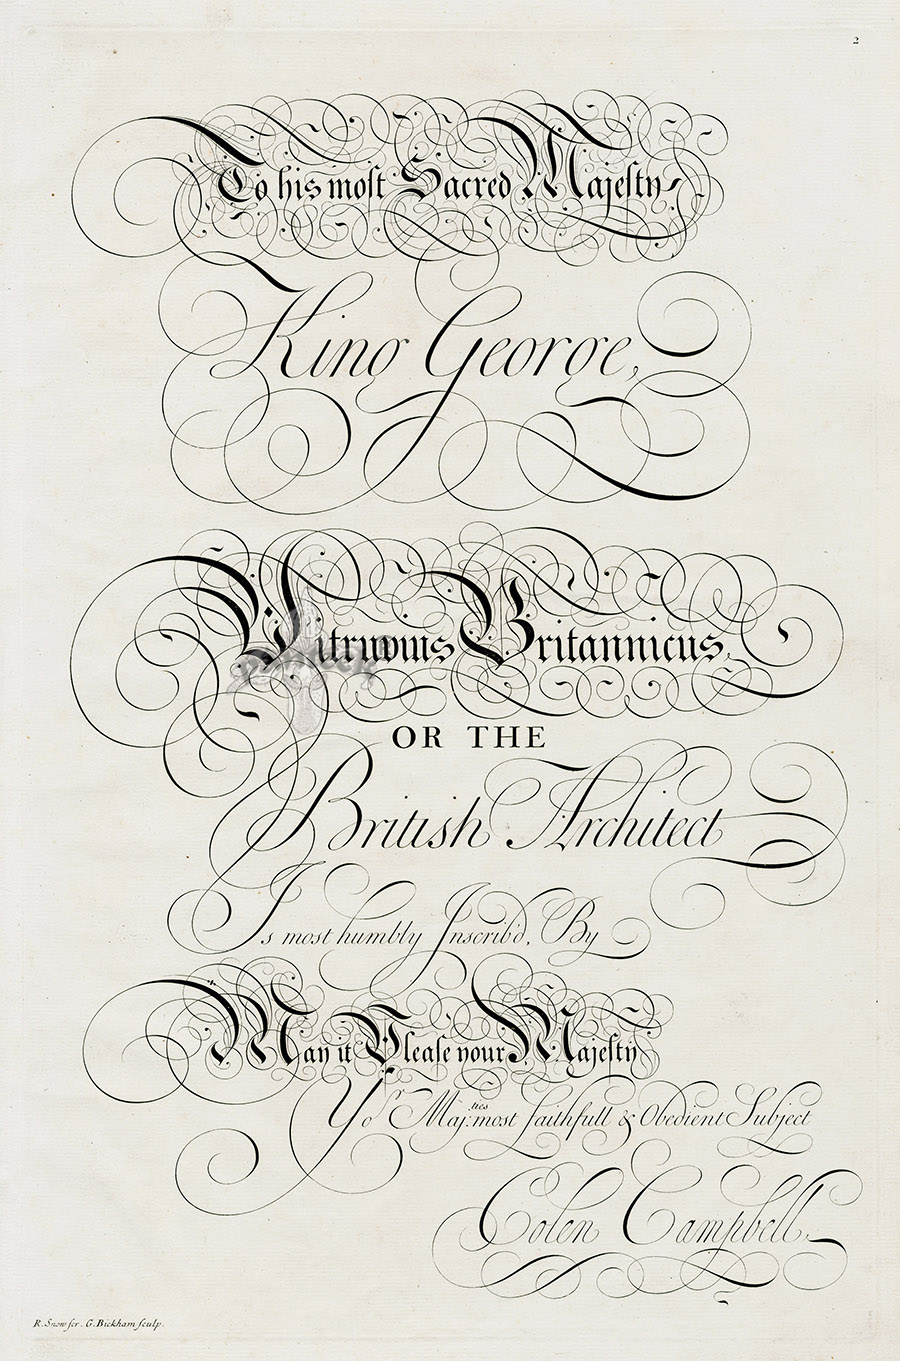 2
To his moſt Sacred Majeſty
King George,
Vitruvius Britannicus,
OR THE
British Architect
Is most humbly Inscrib'd, By
May it Pleaſe your Majeſty
Yoʳ Maj:ᵗⁱᵉˢ most faithfull & Obedient Subject
Colen Campbell.
R. Snow ſcr. G. Bickham ſculp.